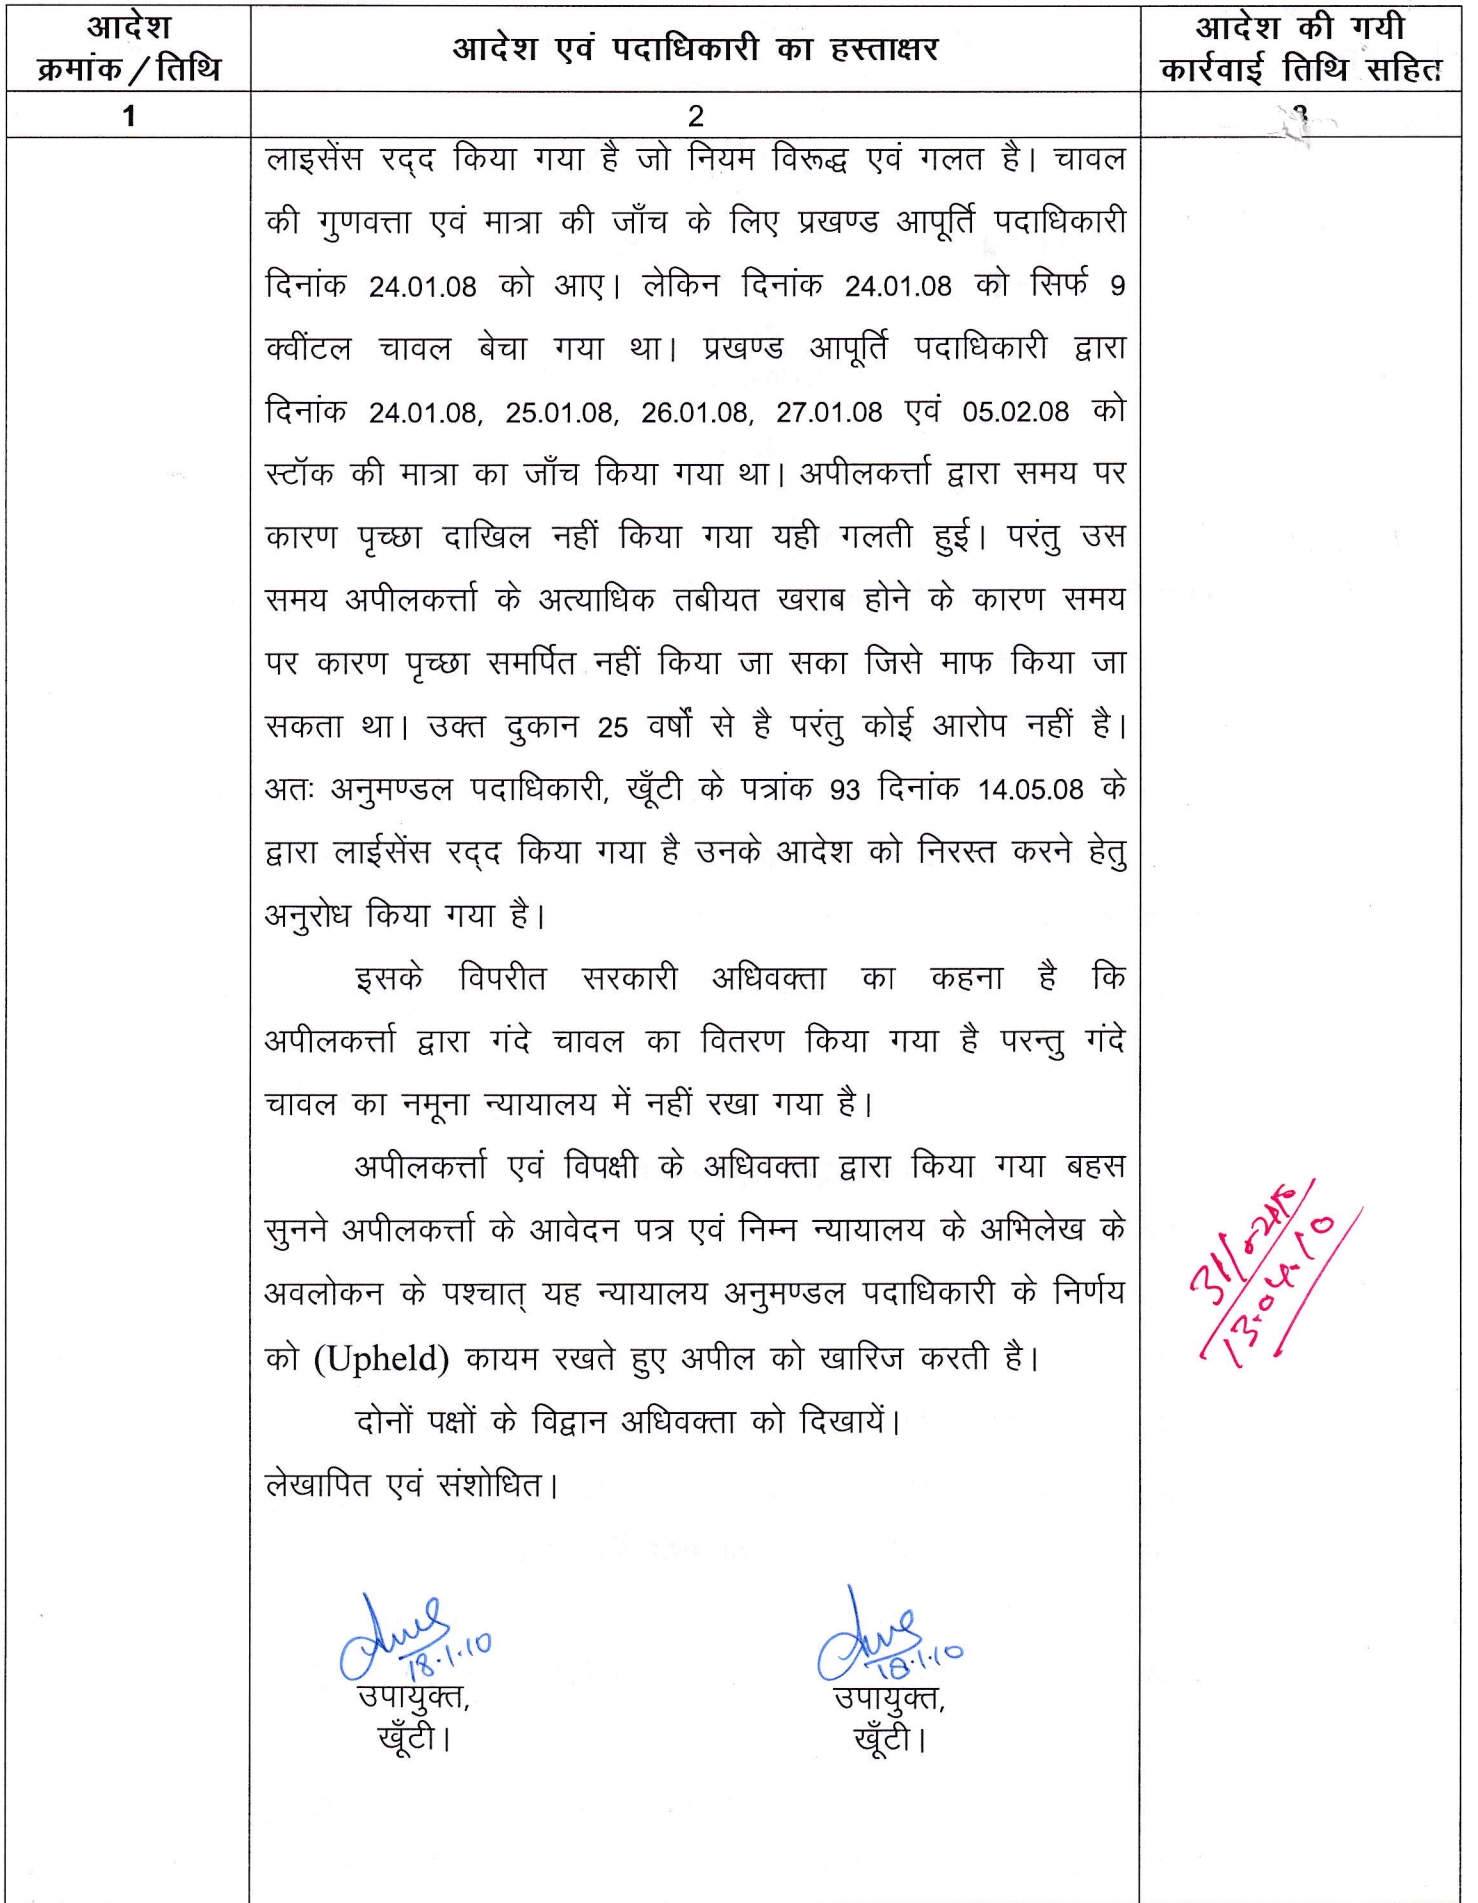 आदेश
क्रमांक / तिथि
आदेश एवं पदाधिकारी का हस्ताक्षर
आदेश की गयी
कार्रवाई तिथि सहित
1
2
3
लाइसेंस रद्द किया गया है जो नियम विरूद्ध एवं गलत है। चावल
की गुणवत्ता एवं मात्रा की जाँच के लिए प्रखण्ड आपूर्ति पदाधिकारी
दिनांक 24.01.08 को आए। लेकिन दिनांक 24.01.08 को सिर्फ 9
क्वींटल चावल बेचा गया था। प्रखण्ड आपूर्ति पदाधिकारी द्वारा
दिनांक 24.01.08, 25.01.08, 26.01.08, 27.01.08 एवं 05.02.08 को
स्टॉक की मात्रा का जाँच किया गया था। अपीलकर्त्ता द्वारा समय पर
कारण पृच्छा दाखिल नहीं किया गया यही गलती हुई। परंतु उस
समय अपीलकर्त्ता के अत्याधिक तबीयत खराब होने के कारण समय
पर कारण पृच्छा समर्पित नहीं किया जा सका जिसे माफ किया जा
सकता था। उक्त दुकान 25 वर्षों से है परंतु कोई आरोप नहीं है।
अतः अनुमण्डल पदाधिकारी, खूँटी के पत्रांक 93 दिनांक 14.05.08 के
द्वारा लाईसेंस रद्द किया गया है उनके आदेश को निरस्त करने हेतु
अनुरोध किया गया है।
इसके विपरीत सरकारी अधिवक्ता का कहना है कि
अपीलकर्त्ता द्वारा गंदे चावल का वितरण किया गया है परन्तु गंदे
चावल का नमूना न्यायालय में नहीं रखा गया है।
अपीलकर्त्ता एवं विपक्षी के अधिवक्ता द्वारा किया गया बहस
सुनने अपीलकर्त्ता के आवेदन पत्र एवं निम्न न्यायालय के अभिलेख के
अवलोकन के पश्चात् यह न्यायालय अनुमण्डल पदाधिकारी के निर्णय
को (Upheld) कायम रखते हुए अपील को खारिज करती है।
दोनों पक्षों के विद्वान अधिवक्ता को दिखायें।
लेखापित एवं संशोधित।
13.04.10
18.1.10
18.1.10
उपायुक्त,
उपायुक्त,
खूँटी।
खूँटी।